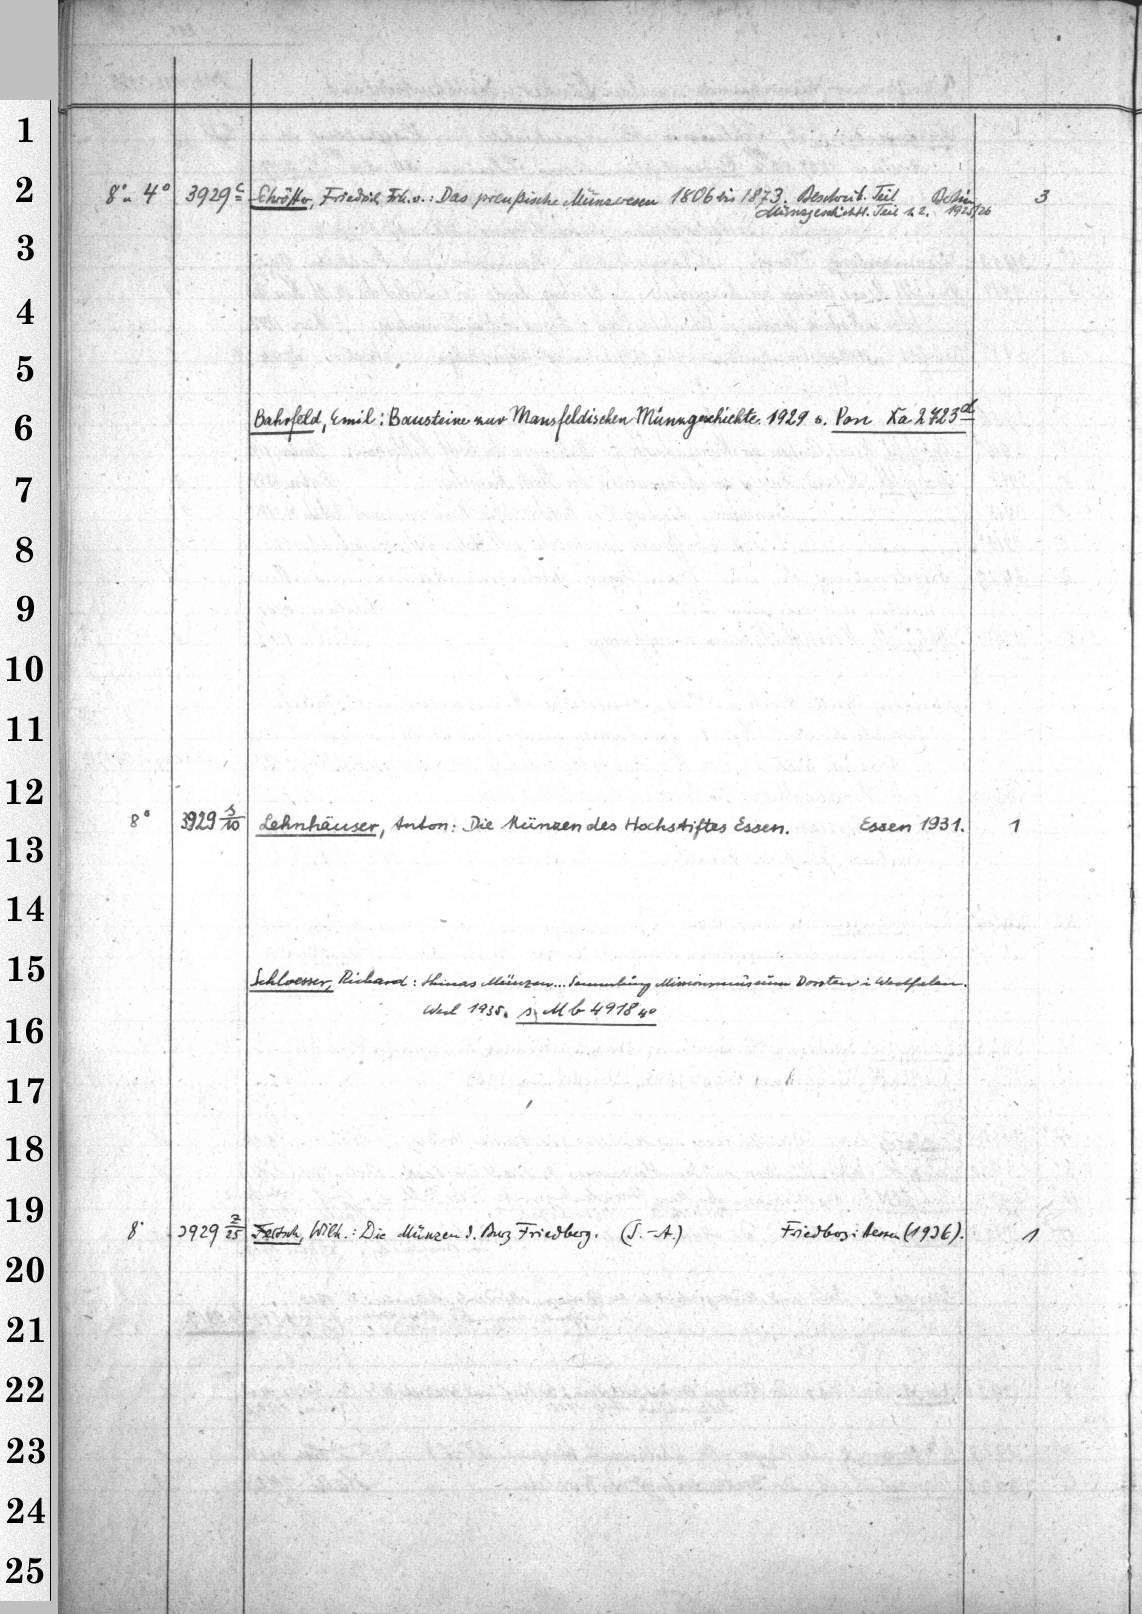 1
2
8° u. 4° 3929 c Schrötter, Friedrich Frh. v.: Das preußische Münzwesen 1806 bis 1873. Beschreib. Teil Berlin 3
Münzgeschichtl. Teil 1. 2. 1925/26
3
4
5
6
Bahrfeld, Emil: Bausteine zur Mansfeldischen Münzgeschichte. 1929 s. Pon Xa 2723 d
7
8
9
10
11
12
8° 3929 s/10 Lehnhäuser, Anton: Die Münzen des Hochstiftes Essen. Essen 1931. 1
13
14
15
Schloesser, Richard: Chinas Münzen... Sammlung Missionsmuseum Dorsten i. Westfalen.
16
Werl 1935. s. Mb 4918 4°
17
18
19
8° 3929 z/25 Fertsch, Wilh.: Die Münzen d. Burg Friedberg. (T.-A.) Friedberg i. Hessen (1936). 1
20
21
22
23
24
25